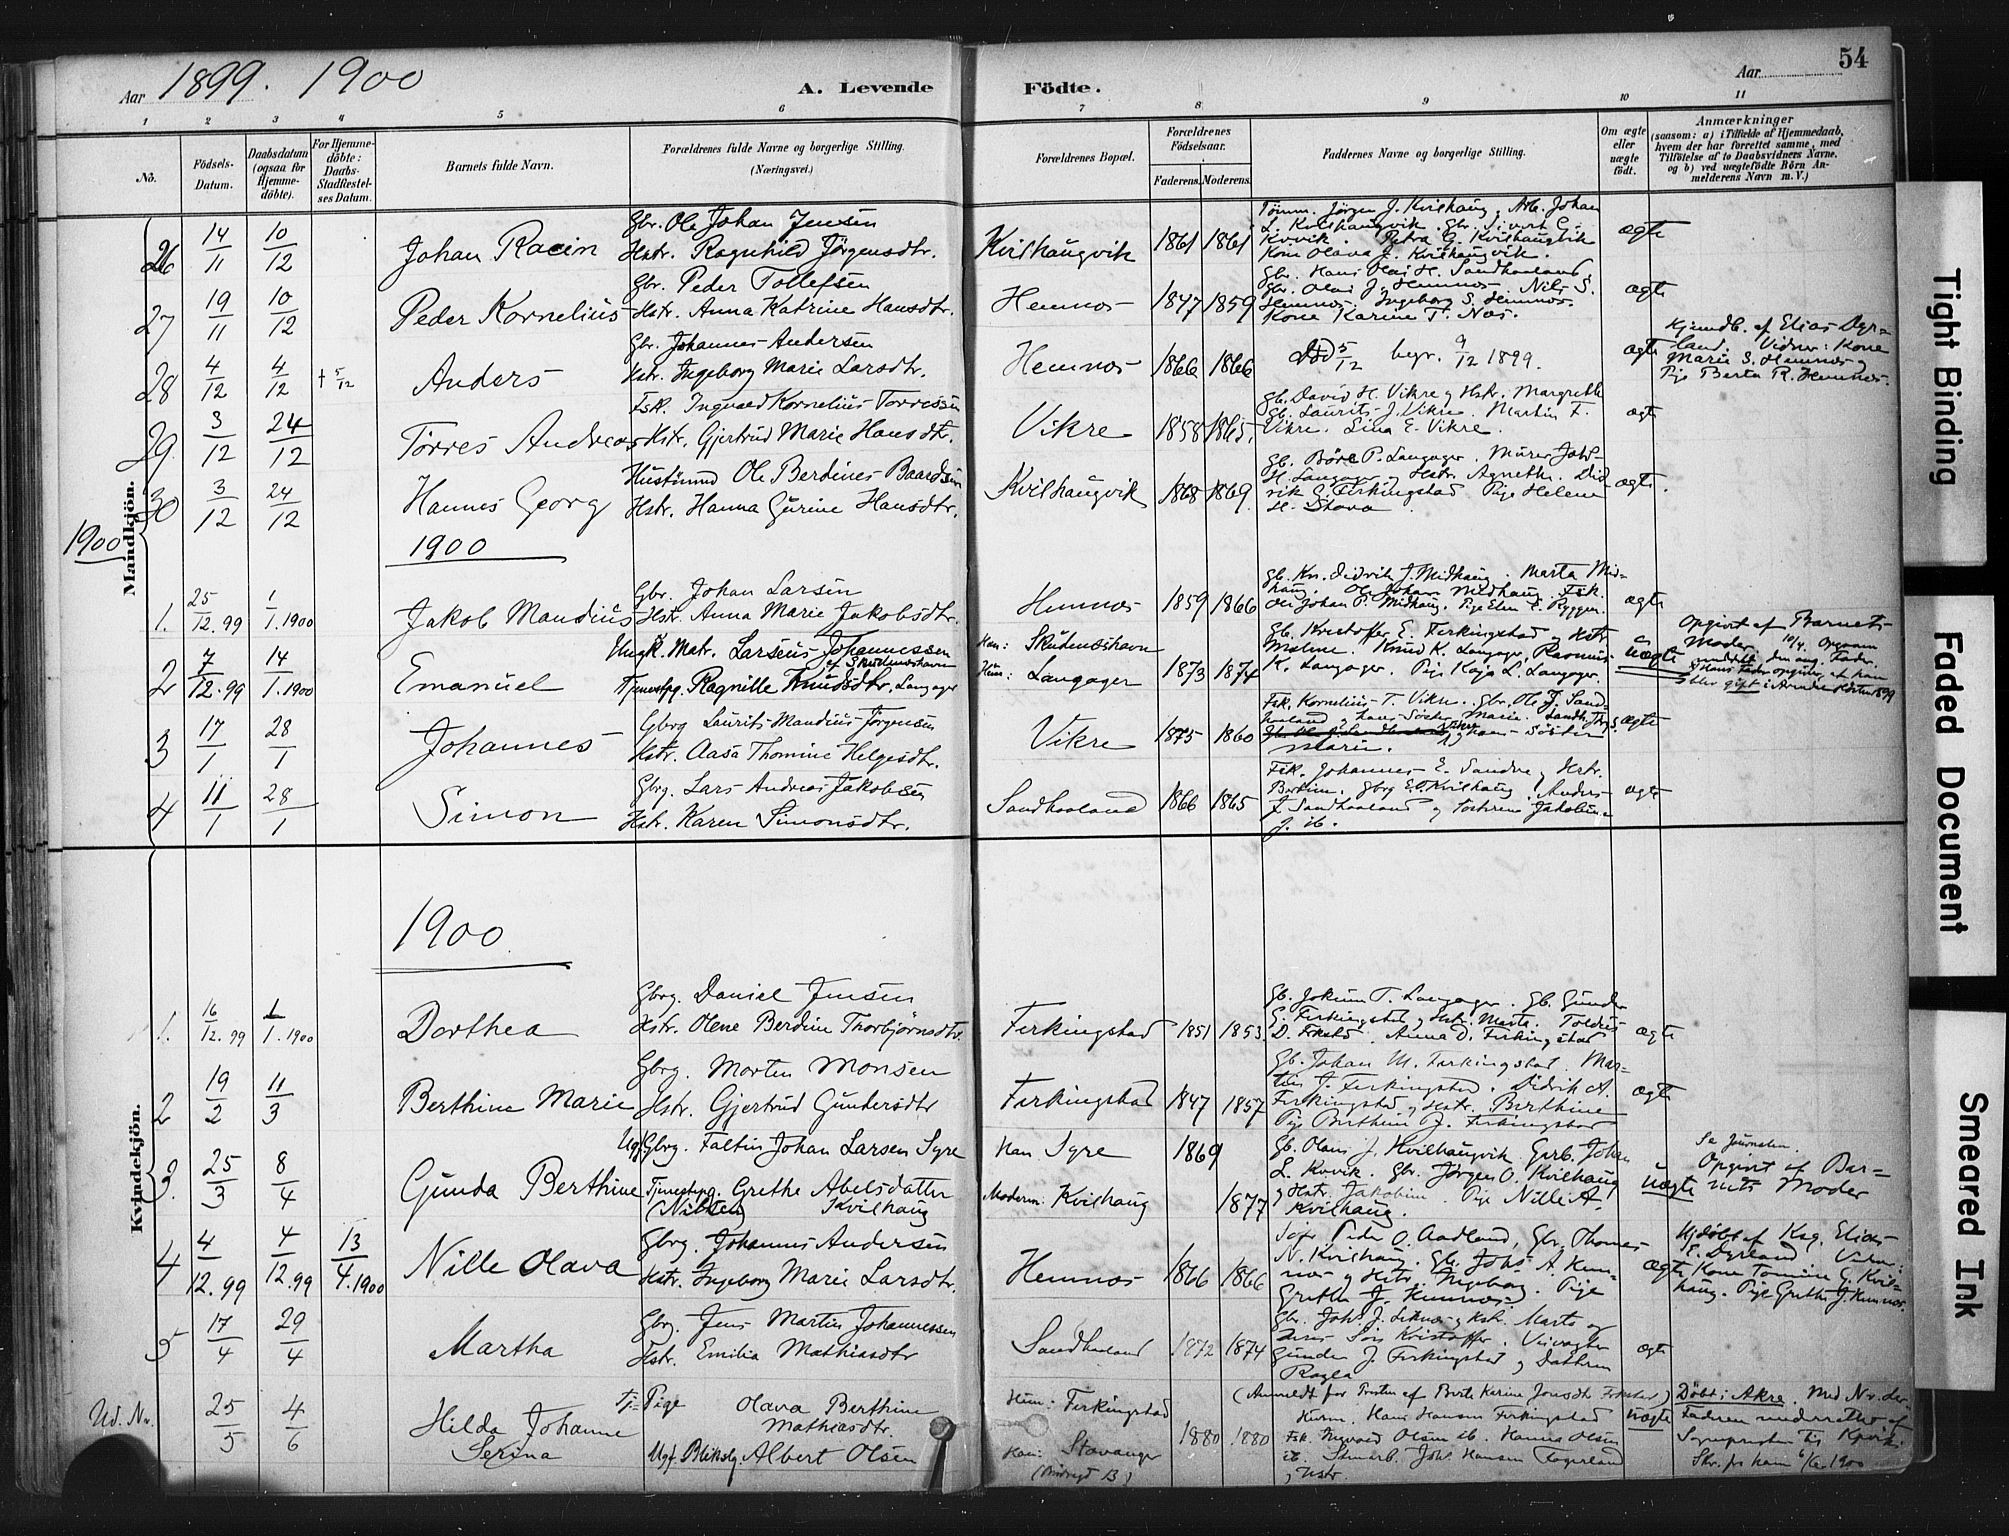 54
Aar 1899. 1900
A. Levende Födte.
Aar
1 2 3 4 5 6 7 8 9 10 11
No.
Födsels-Datum.
Daabsdatum (ogsaa for Hjemme-döbte).
For Hjemme-döbte: Daabs-Stadfæstel-ses Datum.
Barnets fulde Navn.
Forældrenes fulde Navne og borgerlige Stilling.
(Næringsvei.)
Forældrenes Bopæl.
Forældrenes Födselsaar.
Faderens. Moderens.
Faddernes Navne og borgerlige Stilling.
Om ægte eller uægte födt.
Anmærkninger
(saasom: a) i Tilfælde af Hjemmedaab, hvem der har forrettet samme, med Tilföielse af to Daabsvidners Navne, og b) ved uægtefödte Börn Anmelderens Navn m. V.)
Mandkjön.
26 14/11 10/12 Johan Racin
Gbr. Ole Johan Jensen
Hstr. Ragnhild Jörgensdtr.
Kvilhaugvik 1861 1861
Tömm. Jörgen J. Kvilhaug, Arb. Johan
L. Kvilhaugvik. Gbr. Sivert G.
Kvvik. Petra G. Kvilhaugvik
Kone Olava J. Kvilhaugvik.
ægte
27 19/11 10/12 Peder Kornelius
Gbr. Peder Tollefsen
Hstr. Anna Katrine Hansdtr.
Hemnes 1847 1859
Gbr. Hans Olai H. Sandhaaland,
Gbr. Olai J. Hemnes. Nils S.
Hemnes. Ingeborg S. Hemnes.
Kone Karine T. Nes.
ægte
28 4/12 4/12 † 5/12 Anders
Gbr. Johannes Andersen
Hstr. Ingeborg Marie Larsdtr.
Hemnes 1866 1866
Död 5/12 begr. 9/12 1899.
ægte
Hjemdb. af Elias Dyr-
land. Vidner: Kone
Marie S. Hemnes og
Pige Berta R. Hemnes.
29 3/12 24/12 Törres Andreas
Fsk. Ingvald Kornelius Torressen
Hstr. Gjertrud Marie Hansdtr.
Vikre 1858 1865
Gb. David H. Vikre og Hstr. Margrethe
Gb. Laurits J. Vikre. Martin F.
Vikre. Lina E. Vikre.
ægte
30 3/12 24/12 Hannes Georg
Husmund Ole Berdines Baardsen
Hstr. Hanna Gurine Hansdtr.
Kvilhaugvik 1868 1869
Gb. Böre P. Langager. Murer Johs
H. Langager og Hstr. Agnethe. Did
rik G. Ferkingstad Pige Helene
H. Stava
ægte.
1900
1900
1. 25/12.99 1/1.1900 Jakob Mandius
Gbr. Johan Larsen
Hstr. Anna Marie Jakobsdtr.
Hemnes 1859 1866
Gb. Kn. Didrik J. Midhaug. Marta Mid-
haug. Ole Johan Midhaug. Fsk.
Ole Johan P. Midhaug. Pige Elen E. Ryggen.
ægte
2 7/12.99 14/1.1900 Emanuel
Ungk. Matr. Larseus Johannessen
af Skudeneshavn
Tjenestpg. Ragnille Knudsdtr. Langager
Han: Skudeneshavn
Hun: Langager 1873 1874
Gb. Kristoffer E. Ferkingstad og Hstr
Malene. Knud K. Langager, Rasmus
K. Langager. Pige Kaja L. Langager.
uægte
Opgivet af Barnets
Moder.
3 17/1 28/1 Johannes
Gbrg Laurits Mandius Jörgensen
Hstr. Aasa Thomine Helgesdtr.
Vikre 1875 1860
Fsk. Kornelius T. Vikre. Gbr. Ole J. Sand-
haaland og hans Söster Marie
Marie.
ægte
4 11/1 28/1 Simon
Gbrg. Lars Andreas Jakobsen
Hstr. Karen Simonsdtr.
Sandhaaland 1866 1865
Fsk. Johannes E. Sandve og Hstr.
Berdine. Gbrg E. Kvilhaug, Anders
J. Sandhaaland og Söstren Jakobine
J. ib.
ægte
1900
Kvindekjön.
1. 16/12.99 1/1.1900 Dorthea
Gbrg. Daniel Jensen
Hstr. Olene Berdine Thorbjörnsdtr.
Ferkingstad 1851 1853
Gb. Jokum T. Langager. Gb. Gunder
G. Ferkingstad og Hstr. Marta. Toldrus
D. Frkstd. Anna D. Ferkingstad
ægte
2 19/2 11/3 Berthine Marie
Gbrg. Morten Monsen
Hstr. Gjertrud Gundersdtr
Ferkingstad 1847 1857
Gb. Johan M. Ferkingstad. Mar-
tin J. Ferkingstad. Didrik A.
Ferkingstad og Hstr. Berthine
Pige Berthine J. Ferkingstad
ægte
3. 25/3 8/4 Gunda Berthine
Ugf. Gbrg. Faltin Johan Larsen Syre
Tjenestepg. Grethe Abelsdatter
(Nilsen) Kvilhaug
Han Syre 1869
Moderen: Kvilhaug 1877
Gb. Olaus J. Kvilhaugvik. Garb. Johan
L. Kvvik. Gbr. Jörgen O. Kvilhaug
og Hstr. Jakobine. Pige Nille A.
Kvilhaug.
uægte
Se Journalen.
Opgivet af Bar-
nets Moder
4 4/12.99 4/12.99 13/4.1900 Nille Olava
Gbrg. Johannes Andersen
Hstr. Ingeborg Marie Larsdtr.
Hemnes 1866 1866
Sögr Peder O. Aadland, Gbr. Thomas
N. Kvilhaug. Gb. Johs A. Hem-
nes og Hstr. Ingeborg. Pige
Grethe J. Hemnes
ægte
Hjdöbt af Ksg. Elias
E. Dyrland. Vidn:
Kone Tomine G. Kvil-
haug. Pige Grethe J. Hemnes.
5 17/4 29/4 Martha
Gbrg. Jens Martin Johannessen
Hstr. Emilia Mathiasdtr
Sandhaaland 1872 1874
Gbr. Johs J. Liknes og Hstr. Marte og
deres Sön Kristoffer.
Gunder J. Ferkingstad og Datteren
Ragla
ægte
Ud. Nr. 25/5 4/6 Hilda Johanne
Serina
Tj= Pige Olava Berthine
Mathiasdtr.
Ugf. Bliksl. Albert Olsen
Hun: Ferkingstad
Han: Stavanger 1880 1880
(Anmeldt for Presten af Berte Karine Jonsdtr Frkstad)
Husm. Hans Hansen Ferkingstad
Fsk. Ingvald Olsen ib. Hanna Olsen
ib. Stenarb. Johs. Hansen Fagerland
og Hstr.
uægte
Döbt i Akre. Med. Nr. der-
Faderen underrettet af
Sognepresten til Kopvik.
Skr. fra ham 6/12 1900